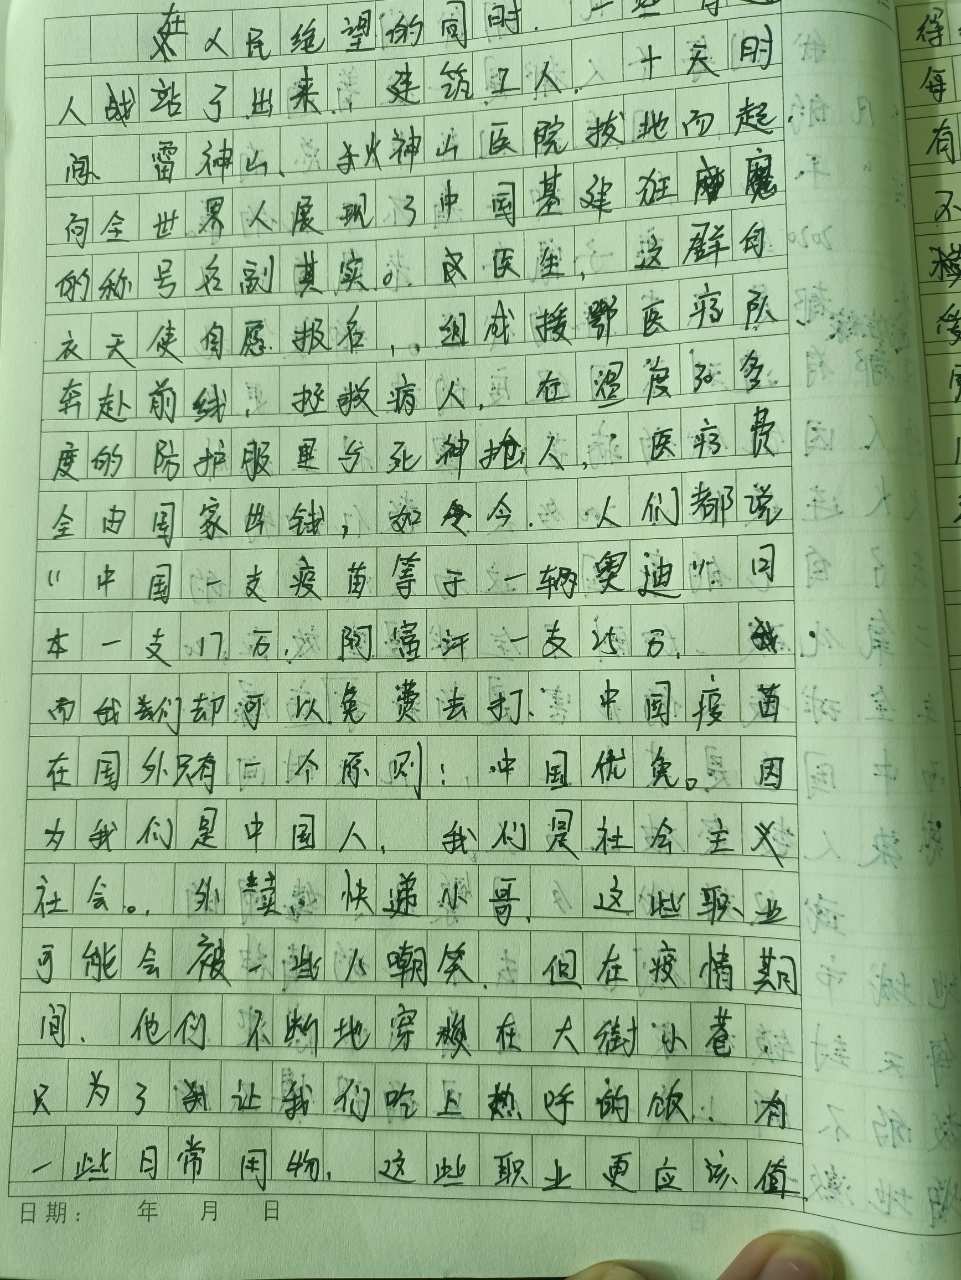 在人民绝望的同时,一些
人战站了出来,建筑工人,十天时
间、雷神山、火神山医院拔地而起.
向全世界人展现了中国基建狂魔
的称号名副其实。医生,这群白
衣天使自愿报名,组成援鄂医疗队,
奔赴前线,拯救病人,在温度30多
度的防护服里与死神抢人,医疗费
全由国家出钱,如今.人们都说
"中国一支疫苗等于一辆奥迪"日
本一支17万,阿富汗一支25万,
而我们却可以免费去打,中国疫苗
在国外只有一个原则:中国优免。因
为我们是中国人,我们是社会主义
社会。外卖,快递小哥,这些职业
可能会被一些人嘲笑,但在疫情期
间,他们不断地穿梭在大街小巷,
只为了让我们吃上热呼的饭,有
一些日常用物,这些职业更应该值
日期: 年 月 日